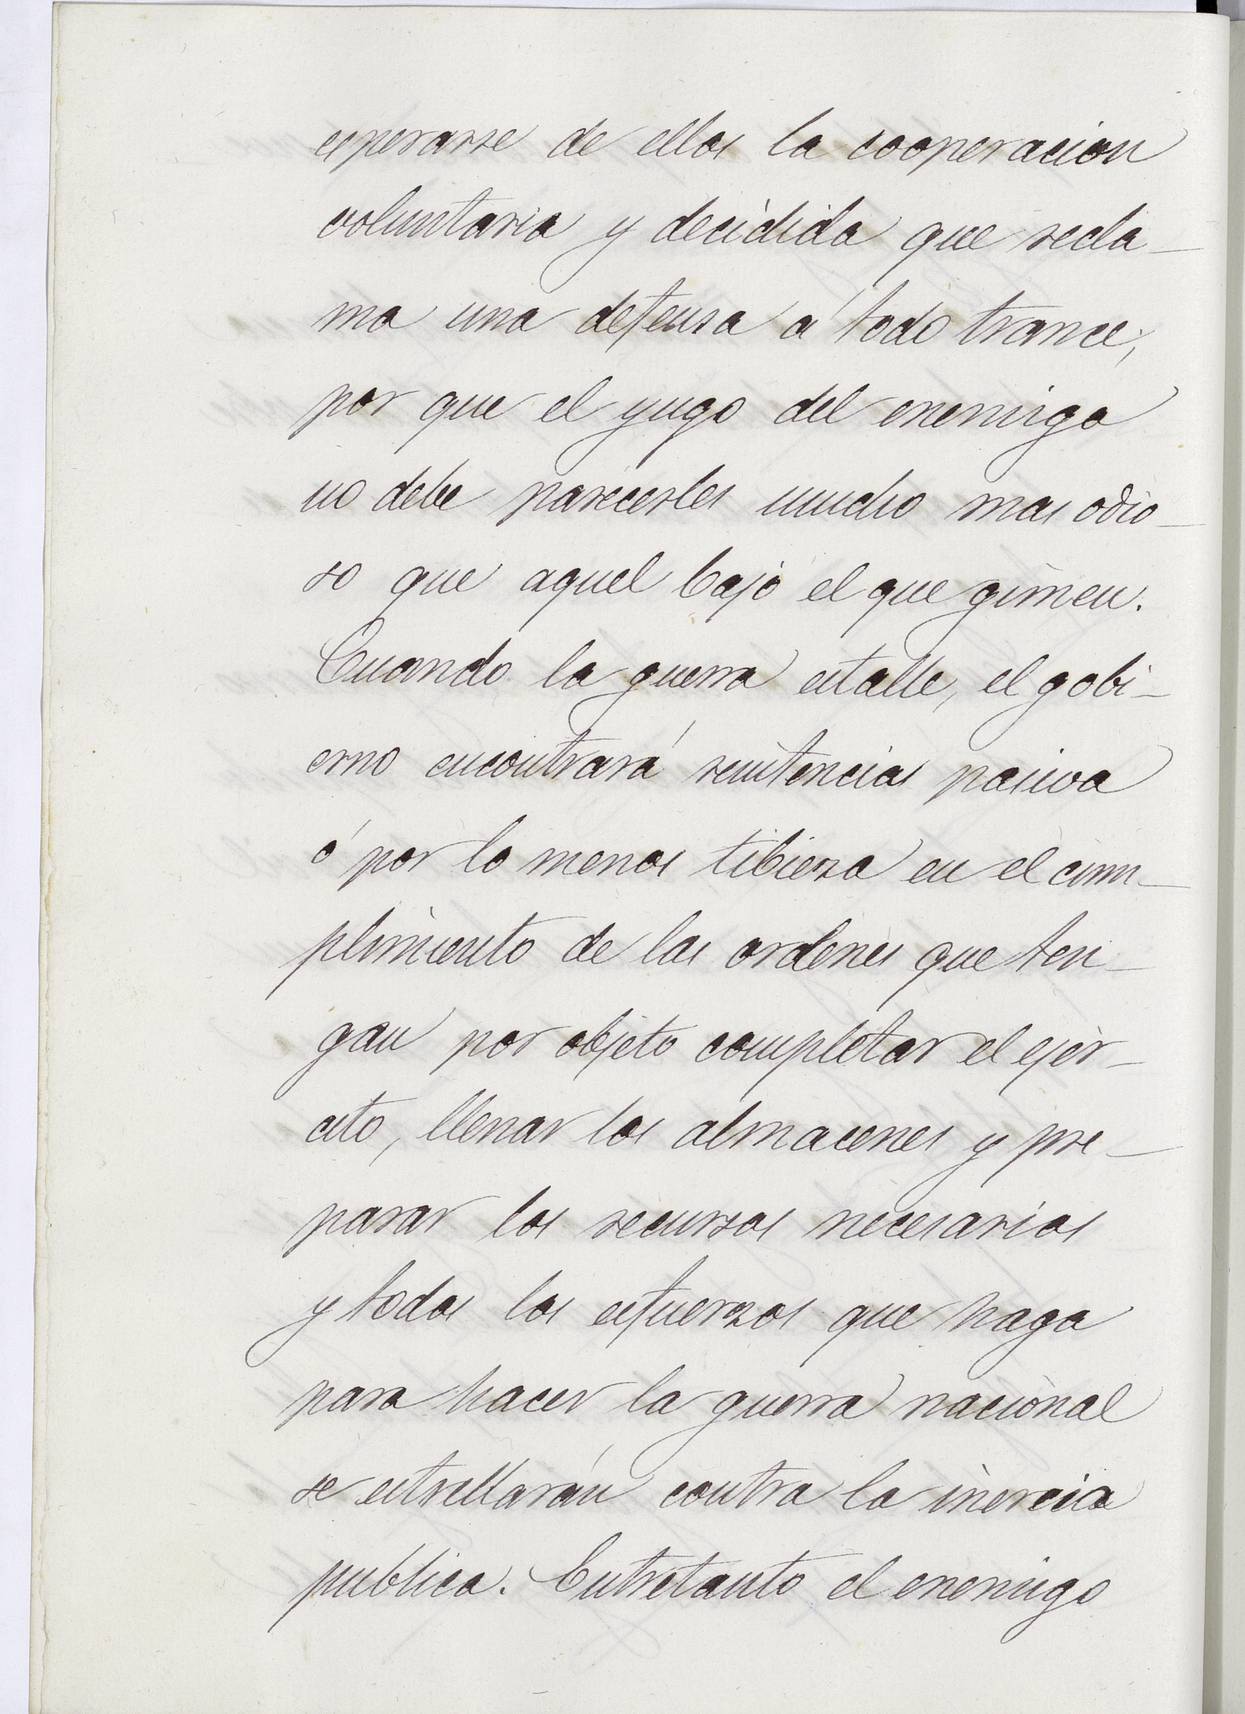 esperarse de ellos la cooperacion
voluntaria y decidida que recla-
ma una defensa á todo trance,
por que el yugo del enemigo
no debe parecerles mucho mas odio-
so que aquel bajo el que gimen.
Cuando la guerra estalle, el gobi-
erno encontrará resistencias pasiva
ó por lo menos tibieza en el cum-
plimiento de las ordenes que ten-
gan por objeto completar el ejér-
cito, llenar los almacenes y pre-
parar los recursos necesarios
y todos los esfuerzos que haga
para hacer la guerra nacional
se estrellarán contra la inercia
publica. Entretanto el enemigo